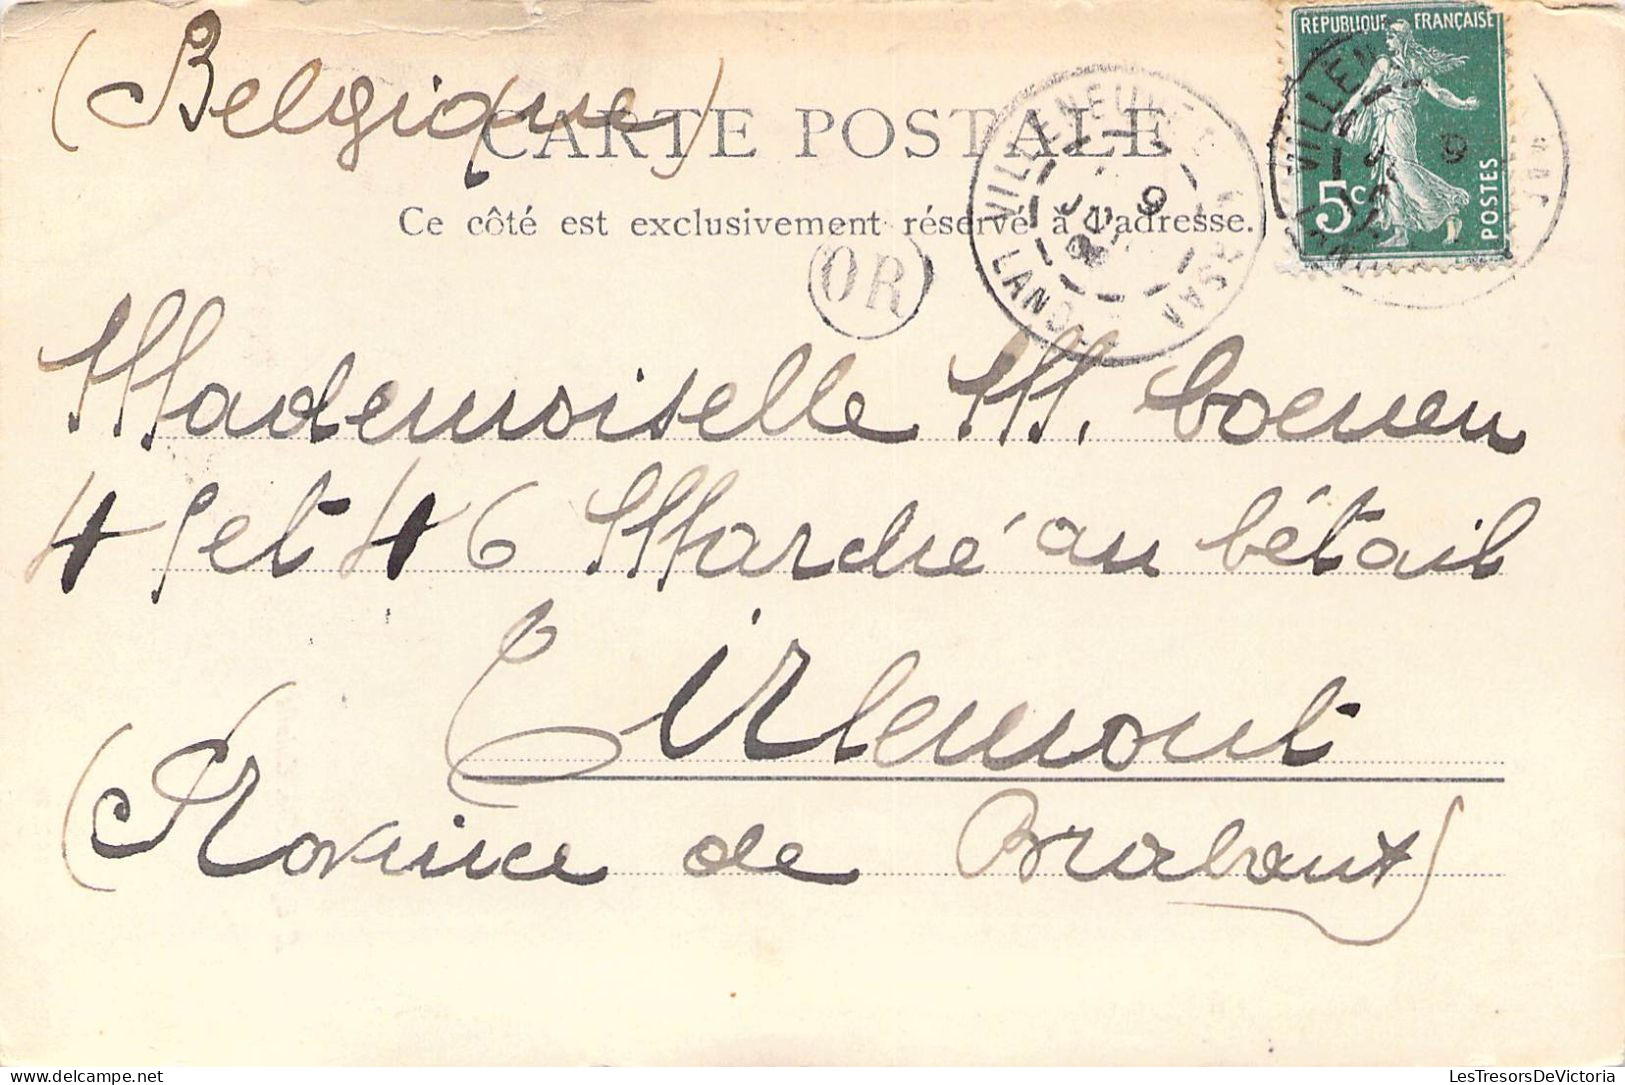 (Belgique)
CARTE POSTALE
Ce côté est exclusivement réservé à l'adresse.
RÉPUBLIQUE FRANÇAISE
5c
POSTES
OR
Mademoiselle M. Coenen
45 et 46 Marché au bétail
Tirlemont
(Province de Brabant)
LesTresorsDeVictoria